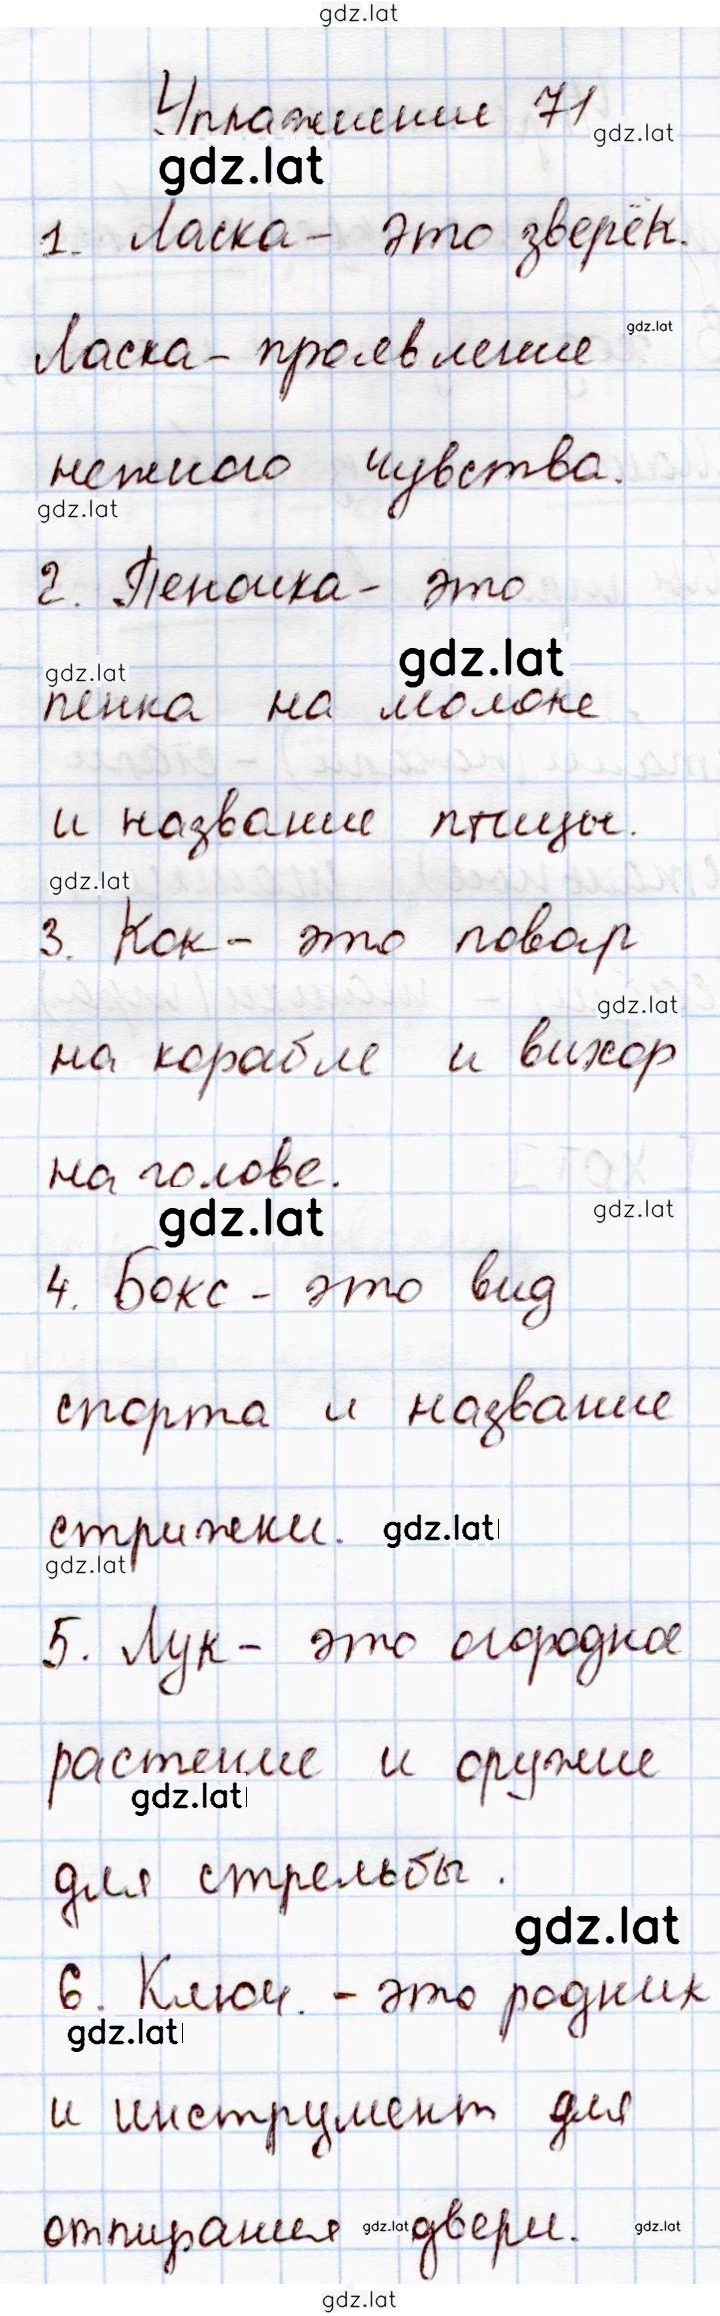 gdz.lat
Упражнение 71
gdz.lat
gdz.lat
1. Ласка - это зверёк.
gdz.lat
Ласка - проявление
нежного чувства.
gdz.lat
2. Пеночка - это
gdz.lat
gdz.lat
пенка на молоке
и название птицы.
gdz.lat
3. Кок - это повар
gdz.lat
на корабле и вихор
на голове.
gdz.lat
gdz.lat
4. Бокс - это вид
спорта и название
стрижки. gdz.lat
gdz.lat
5. Лук - это огородное
растение и оружие
gdz.lat
для стрельбы.
gdz.lat
6. Ключ. - это родник
gdz.lat
и инструмент для
отпирания gdz.lat двери. gdz.lat
gdz.lat